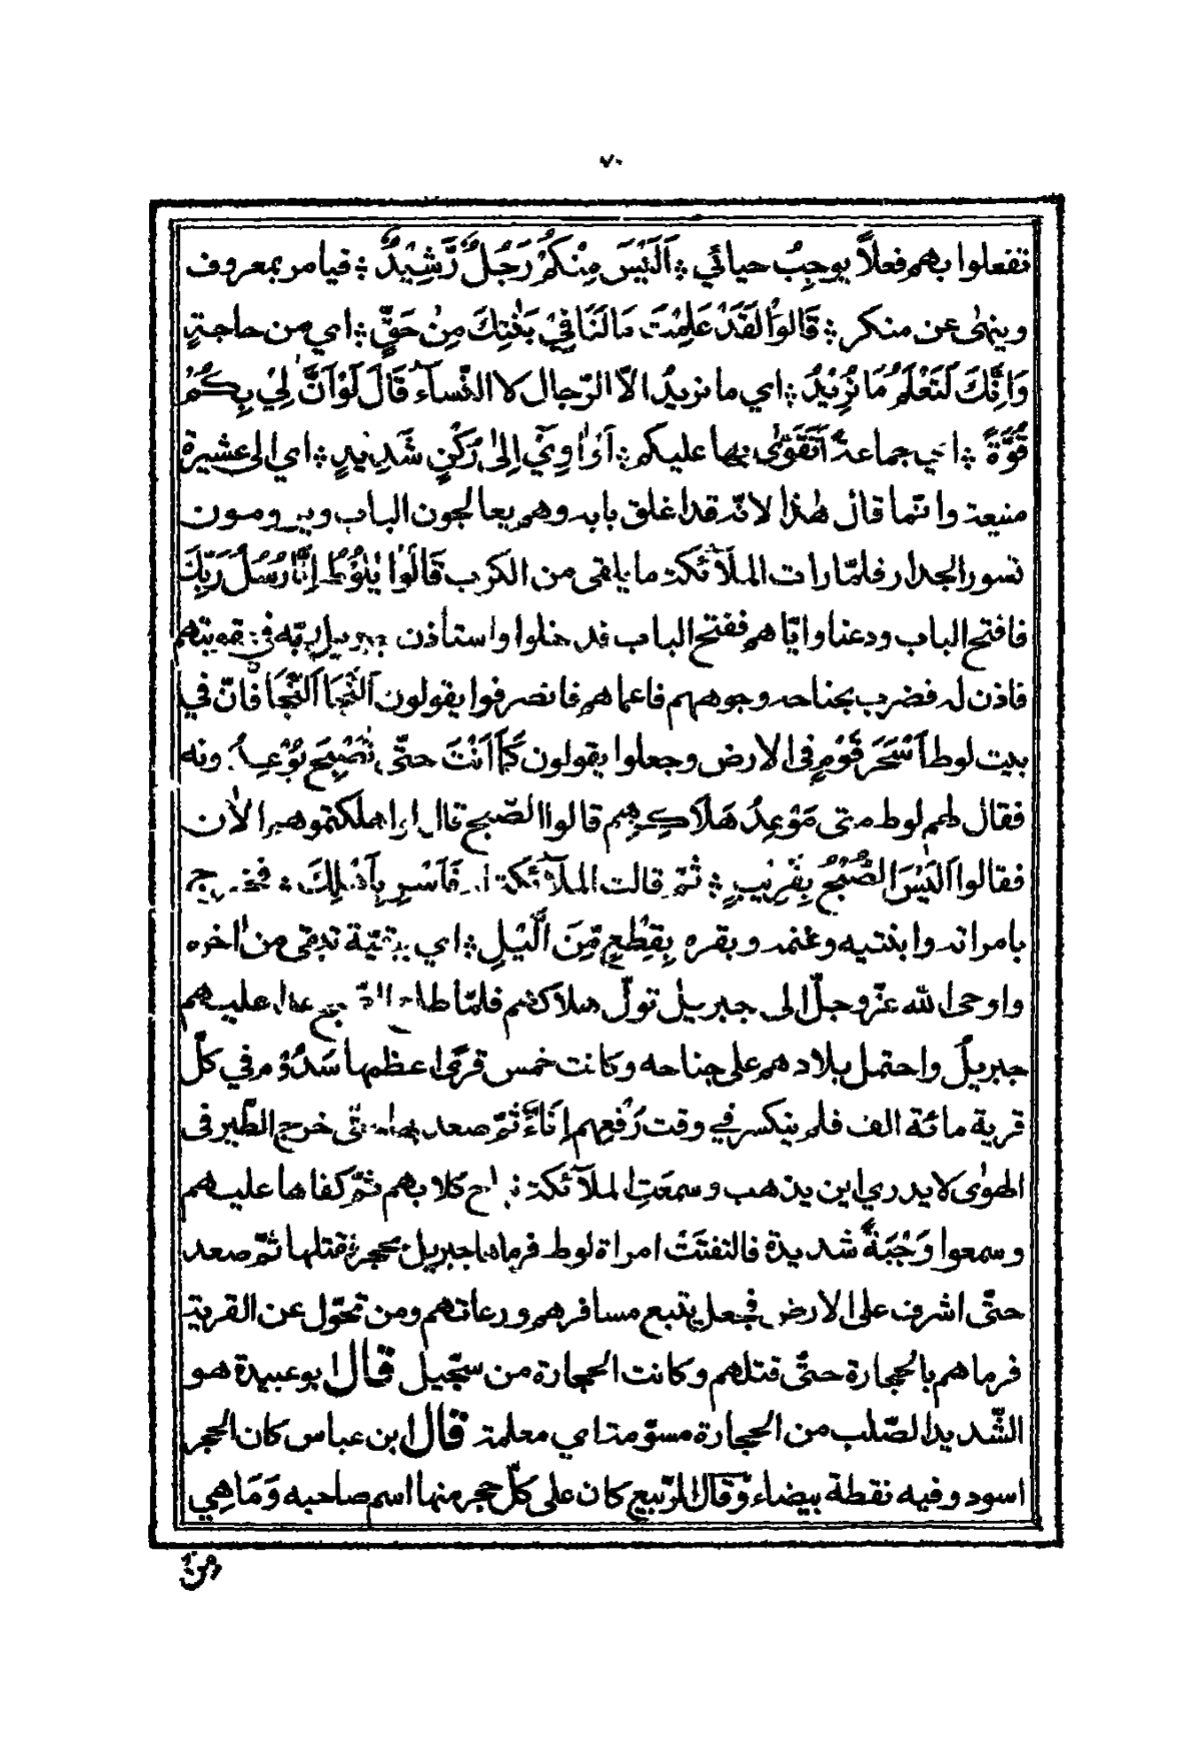 ٧٠
تفعلوا بهم فعلاً يوجبُ حيائي ؞ اَلَيْسَ مِنْكُمْ رَجُلٌ رَّشِيْدٌ ؞ فيامر بمعروف
وينهى عن منكر ؞ قَالُوْا لَقَدْ عَلِمْتَ مَا لَنَا فِيْ بَنٰتِكَ مِنْ حَقٍّ ؞ اي من حاجةٍ
وَاِنَّكَ لَتَعْلَمُ مَا نُرِيْدُ ؞ اي ما نريدُ الّا الرّجال لا النّسآء قَالَ لَوْ اَنَّ لِيْ بِكُمْ
قُوَّةً ؞ اي جماعةً اَتَقَوّٰى بها عليكم ؞ اَوْ اٰوِيْٓ اِلٰى رُكْنٍ شَدِيْدٍ ؞ اي الى عشيرة
منيعة وانّما قال هٰذا لانّه قد اغلق بابه وهم يعالجون الباب ويرومون
تسور الجدار فلمّا رات الملآئكة ما يلقى من الكرب قَالُوْا يٰلُوْطُ اِنَّا رُسُلُ رَبِّكَ
فافتح الباب ودعنا وايّاهم ففتح الباب فدخلوا واستاذن جبريل ربّه في عقوبتهم
فاذن له فضرب بجناحه وجوههم فاعماهم فانصرفوا يقولون اَلنَّجَا اَلنَّجَا فانّ في
بيت لوط اَسْحَرَ قَوْمٍ فى الارض وجعلوا يقولون كَمَا اَنْتَ حتّى نُصْبِحَ
فقال لهم لوط متى مَوْعِدُ هَلَاكِهِم قالوا الصّبح قال اهلكتموهم الاٰن
فقالوا اَلَيْسَ الصُّبْحُ بِقَرِيْبٍ ؞ ثمّ قالت الملآئكة فَاَسْرِ بِاَهْلِكَ ؞ فخرج
بامراته وابنتيه وغنمه وبقره بِقِطْعٍ مِّنَ الَّيْلِ ؞ اي بقيّة تبقى من اٰخره
واوحى الله عزّ وجلّ الى جبريل تولّ هلاكهم فلمّا طلع عليهم
جبريلُ واحتمل بلادهم على جناحه وكانت خمس قرًى اعظمها سَدُوْم في كلّ
قرية مائة الف فلم ينكسر في وقت رَفْعِهِم اِنَاءٌ ثمّ صعد بها حتّى خرج الطّير فى
الهوٰى لا يدري اين يذهب وسمعتِ الملآئكة نباح كلابهم ثمّ كفاها عليهم
وسمعوا وَجْبَةً شديدة فالتفتَتَ امراة لوط فرماها جبريل بحجر فقتلها ثمّ صعد
حتّى اشرف على الارض فجعل يتبع مسافرهم ورعاتهم ومن تحوّل عن القرية
فرماهم بالحجارة حتّى قتلهم وكانت الحجارة من سجّيل قال ابو عبيدة هو
الشّديد الصّلب من الحجارة مسوّمة اي معلمة قال ابن عباس كان الحجر
اسود وفيه نقطة بيضاء وقال الرّبيع كان على كلّ حجر منها اسم صاحبه وَمَا هِي
من